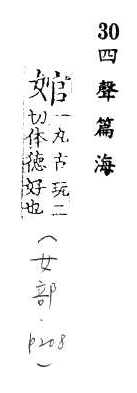 30四聲篇海
婠一丸古玩二
切体德好也
(女部．p208)